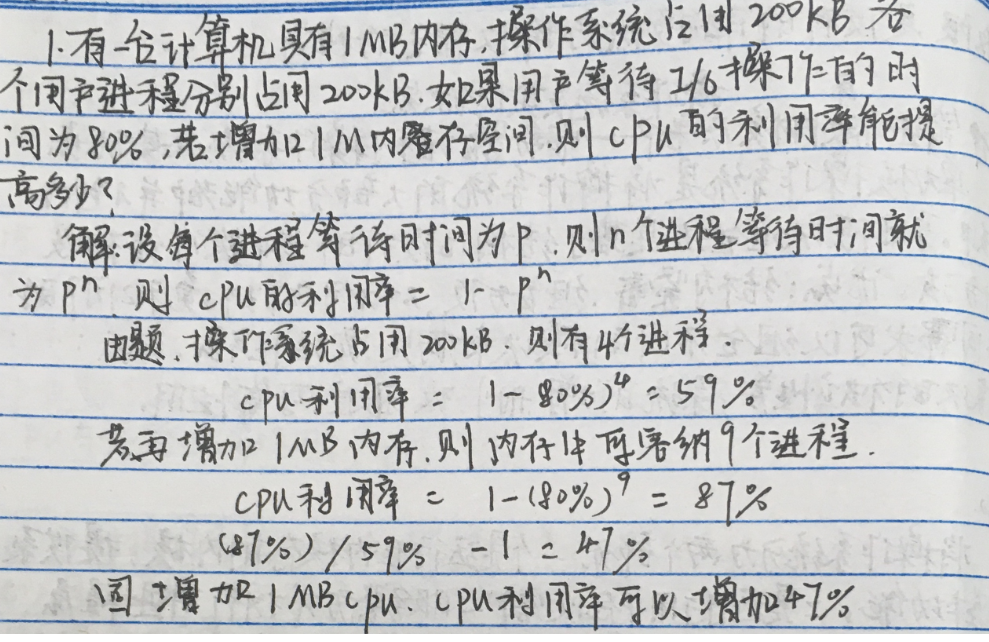 1.有一台计算机具有1MB内存,操作系统占用200KB 各
个用户进程分别占用200KB.如果用户等待I/O操作的时
间为80%,若增加1M内存空间.则CPU的利用率能提
高多少?
解:设每个进程等待时间为P.则n个进程等待时间就
为Pⁿ.则CPU的利用率=1-Pⁿ
由题,操作系统占用200KB.则有4个进程.
CPU利用率 = 1-80%)⁴ = 59%
若再增加1MB内存.则内存中可容纳9个进程.
CPU利用率 = 1-(80%)⁹ = 87%
(87%)/59% -1 = 47%
增加1MBCPU.CPU利用率可以增加47%